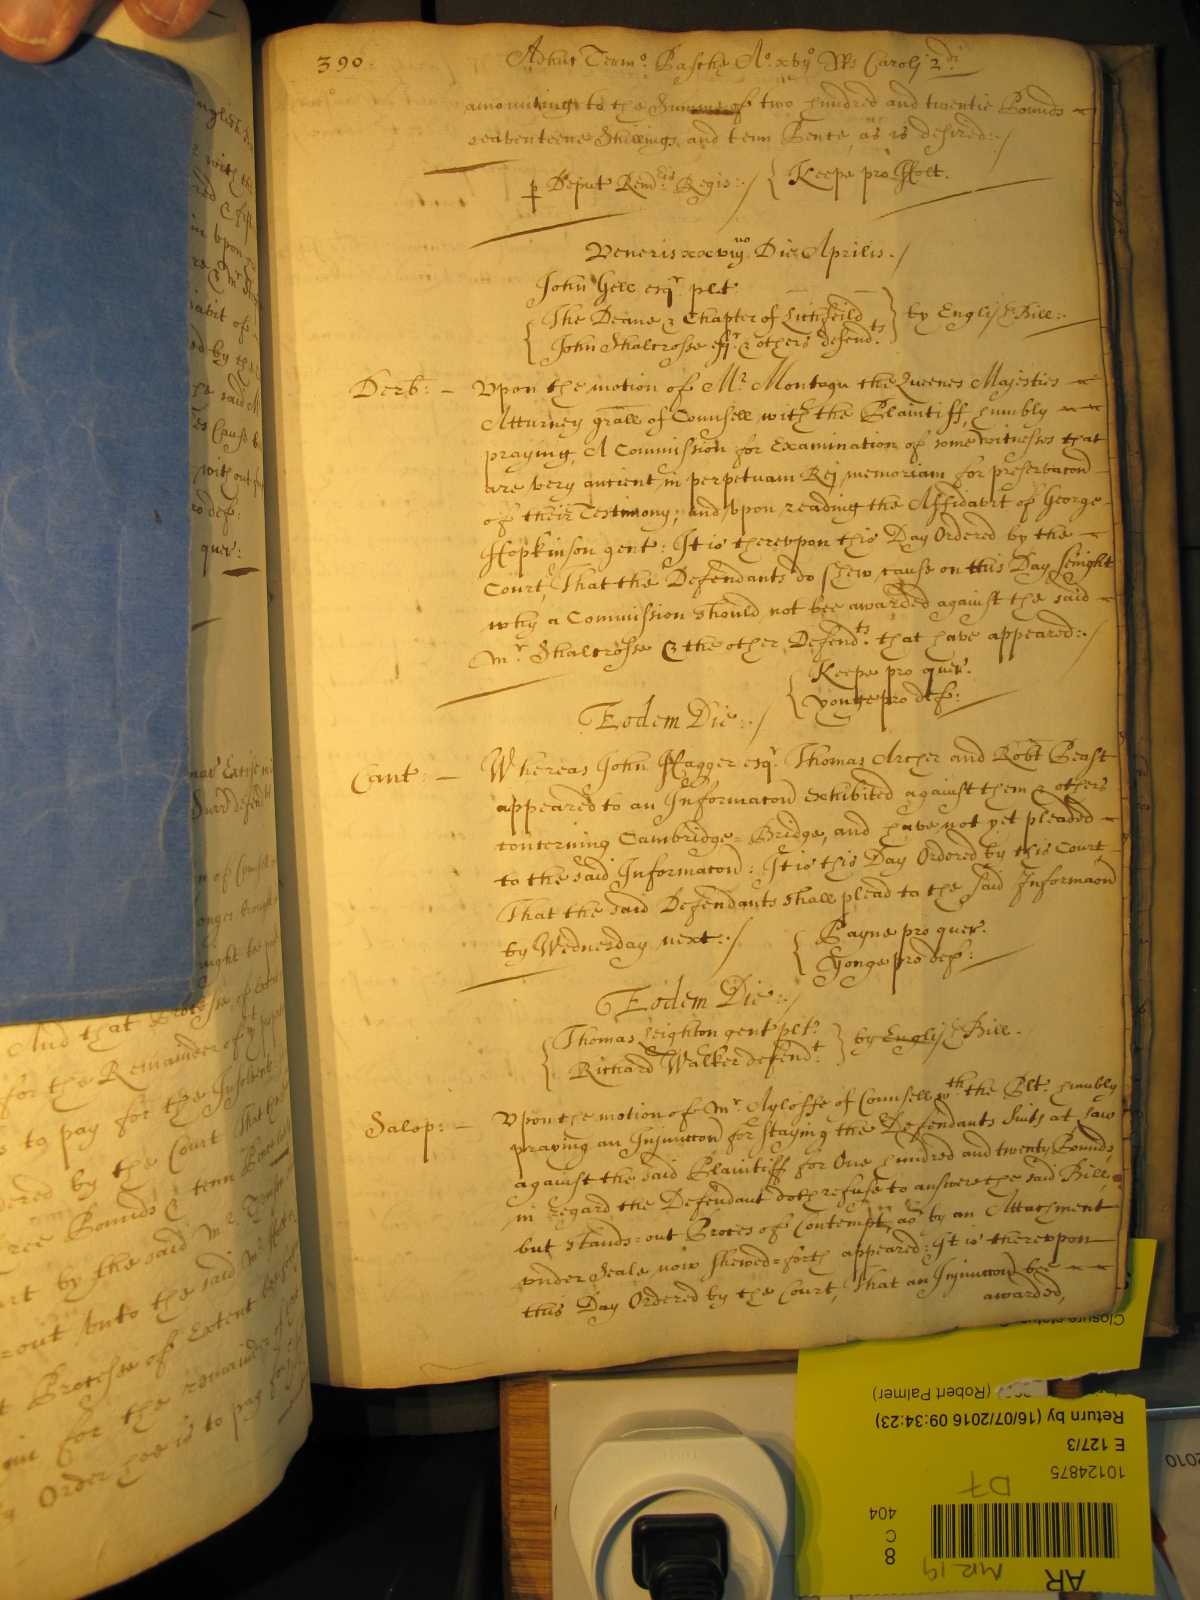 390.
Adhuc Termo. Pasche Ao. xvijo RRs Caroli 2di
amounting to the Summe of two hundred and twentie Pounds
seaventeene Shillings and tenn Pence, as is desired:./
p Deput Remris Regis:./ { Keepe pro Holt.
Veneris xxvijmo Die Aprilis./
John Gell esqr. plt.
The Deane & Chapter of Litchfeild
John Shalcrosse esqr. & others defendts. } by English Bill:.
Derb: - Vpon the motion of Mr. Montagu the Queenes Majesties
Atturney grall of Counsell with the Plaintiff, humbly
praying, A Commission for Examination of some witnesses that
are very ancient, in perpetuam Rej memoriam for preservacon
of their Testimony; and vpon reading the Affidavit of George
Hopkinson gent: It is therevpon this Day Ordered by the
Court, That the Defendants do shew cause on this Day Senight
why a Commission should not bee awarded against the said
Mr. Shalcrosse & the other Defendts. that have appeared:./
{ Keepe pro quer.
Yonge pro def:
Eodem Die:./
Cant: - Whereas John ffagger esqr. Thomas Archer and Robt Peast
appeared to an Informacon exhibited against them & others
concerning Cambridge=Bridge, and have not yet pleaded
to the said Informacon: It is this Day Ordered by this Court
That the said Defendants shall plead to the said Informacon
by Wednesday next:./ { Payne pro quer.
Yonge pro def:
Eodem Die:./
{ Thomas Leighton gent plt.
Richard Walker defendt. } by English Bill.
Salop: - Vpon the motion of Mr. Ayloffe of Counsell wth. the Plt. humbly
praying an Injunccon for staying the Defendants Suits at Law
against the said Plaintiff for One hundred and twenty Pounds,
in regard the Defendant doth refuse to answere the said Bill,
but stands=out Proces of Contempt, as by an Attachment
vnder Seale now shewed=forth appeared: It is therevpon
this Day Ordered by the Court, That an Injunccon bee
awarded,
And that Processe of Extent
for the Remainder of
to pay for the Insolvent
by the Court That the
Pounds & tenn Pence
by the said Mr.
out vnto the said Mr.
Processe of Extent
for the remainder of
Order hee is to pay for
Closure status
(Robert Palmer)
Return by (16/07/2016 09:34:23)
E 127/3
10124875
D7
404
C
8
AR
MR 19